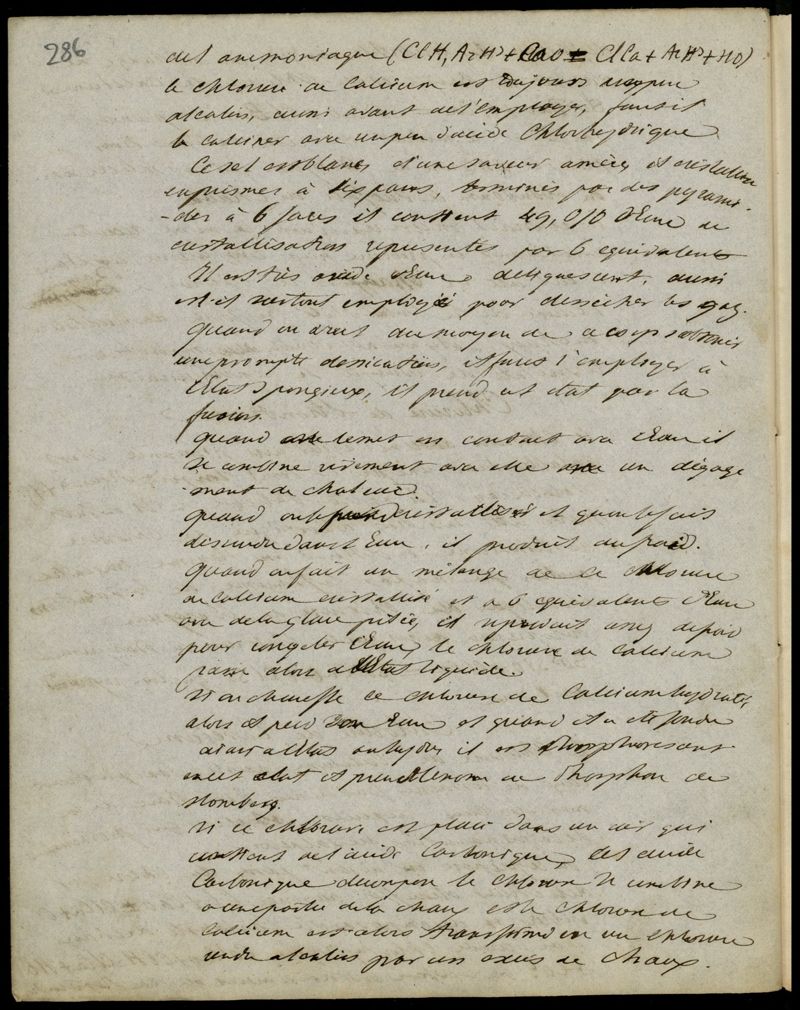 286
de l'ammoniaque (ClH, AzH³ + CaO = ClCa + AzH³ + HO)
le chlorure de Calcium est toujours un peu
alcalin, aussi avant de l'employer, faut il
le calciner avec un peu d'acide Chlorhydrique
Ce sel est blanc, d'une saveur amère, et cristallise
en prismes à six pans, terminés par des pyrami
-des à 6 faces il contient 49, 0/0 d'Eau de
cristallisation représentés par 6 équivalents
Il est très avide d'Eau, déliquescent, aussi
est-il surtout employé pour dessécher les gaz.
quand on veut au moyen de ce corps obtenir
une prompte dessication, il faut l'employer à
l'état spongieux, il prend cet état par la
fusion.
quand on le met en contact avec l'Eau il
se combine vivement avec elle avec un dégage
-ment de chaleur.
quand on le prend cristallisé et qu'on le fait
dissoudre dans l'Eau, il produit du froid.
quand on fait un mélange de ce chlorure
de calcium cristallisé et à 6 équivalents d'Eau
avec de la glace pilée, il se produit assez de froid
pour congeler l'Eau, le chlorure de calcium
passe alors à l'Etat liquide.
Si on chauffe ce chlorure de Calcium hydraté,
alors il perd son Eau et quand il a été fondu
ainsi à l'état anhydre, il est phosphorescent
en cet état il prend le nom de Phosphore de
Homberg.
Si ce chlorure est placé dans un air qui
contient de l'acide Carbonique, cet acide
Carbonique décompose le chlorure se combine
à une partie de la chaux et le chlorure de
calcium est alors transformé en un chlorure
rendu alcalin par un excès de Chaux.